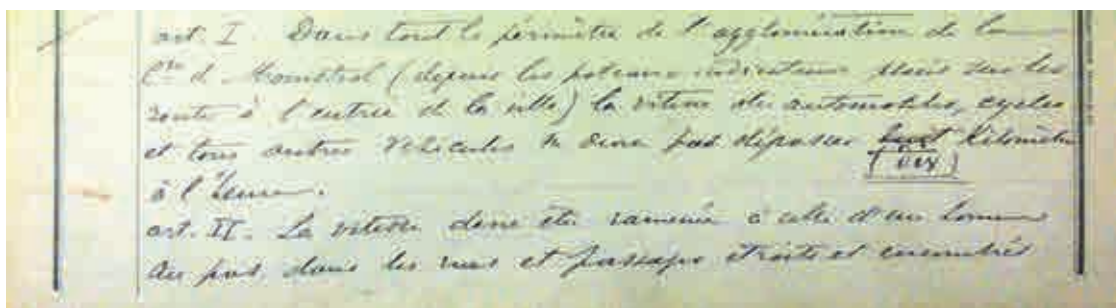 art. I. Dans tout le périmètre de l'agglomération de la
Cne de Monistrol (depuis les poteaux indicateurs placés sur les
route à l'entrée de la ville) la vitesse des automobiles, cycles
et tous autres véhicules ne devra pas dépasser huit Kilomètres
(dix)
à l'heure.
art. II. La vitesse devra être ramenée à celle d'un homme
au pas, dans les rues et passages étroits et encombrés